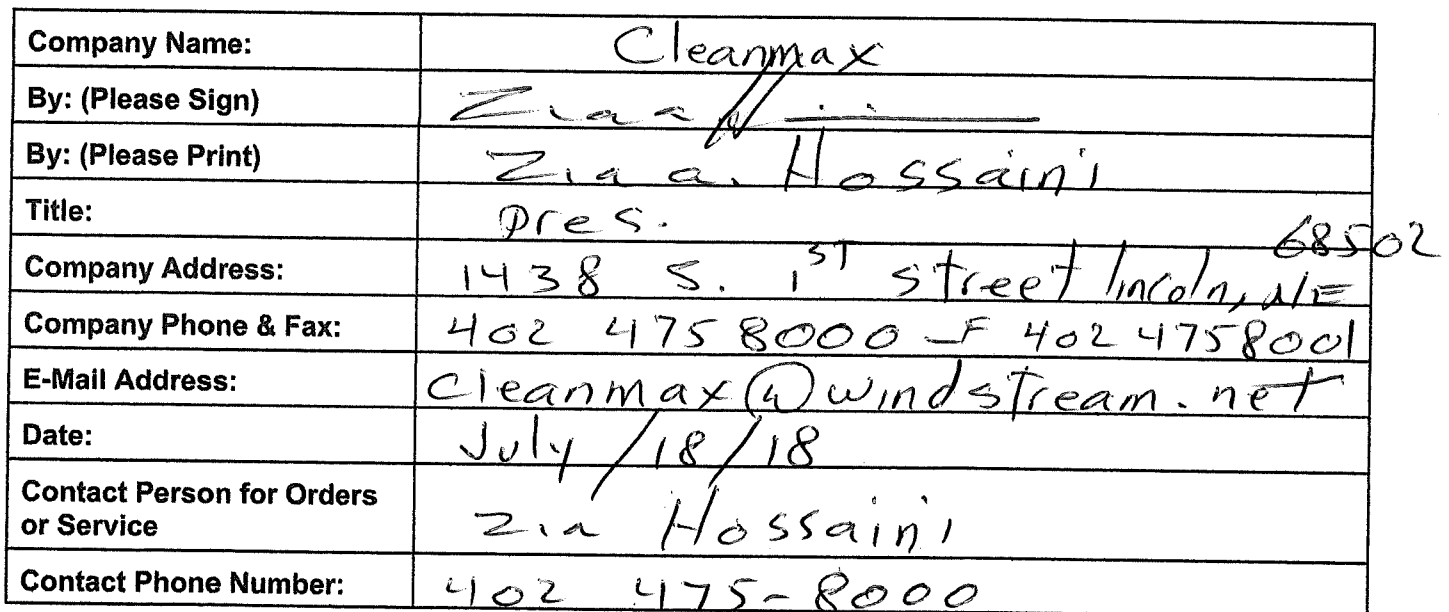 Company Name: Cleanmax
By: (Please Sign) Zia a
By: (Please Print) Zia a. Hossaini
Title: pres.
68502
Company Address: 1438 S. 1ST street lincoln, NE
Company Phone & Fax: 402 475 8000 - F 402 475 8001
E-Mail Address: Cleanmax@windstream.net
Date: July/18/18
Contact Person for Orders
or Service Zia Hossaini
Contact Phone Number: 402 475-8000